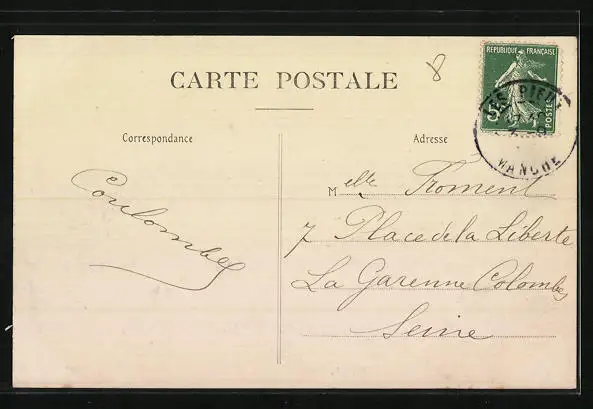 8
CARTE POSTALE
REPUBLIQUE FRANÇAISE
POSTES
LES PIEUX
MANCHE
Correspondance
Adresse
Coulombel
Melle Froment
7 Place de la Liberte
La Garenne Colombes
Seine